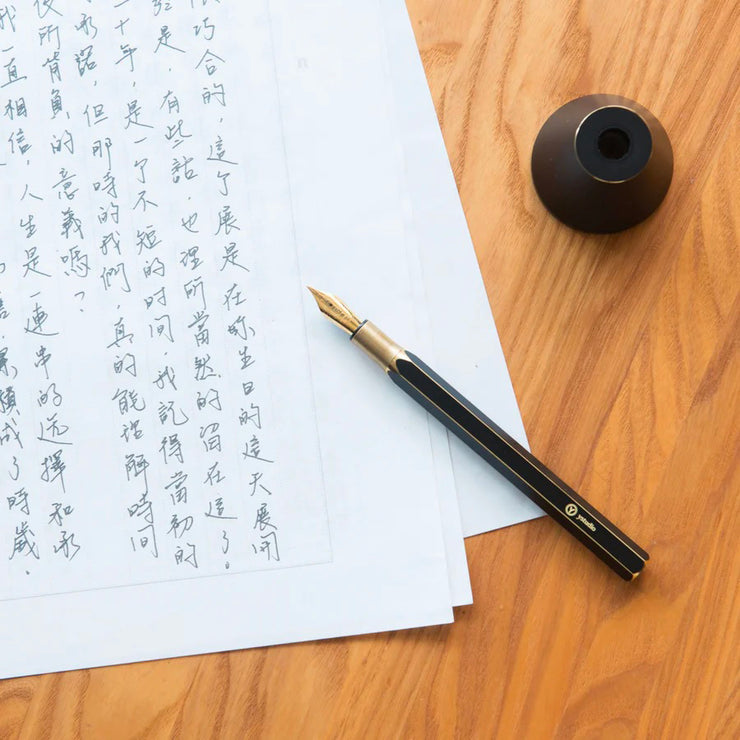 巧合的，這个展是在妳生日的這天展開
是，有些話，也理所當然的留在這了。
十年，是一个不短的時間，我記得當初的
承諾，但那時的我們，真的能理解時間
所背負的意義嗎？
我一直相信，人生是一連串的选擇和承
累積成了時歲．
ystudio